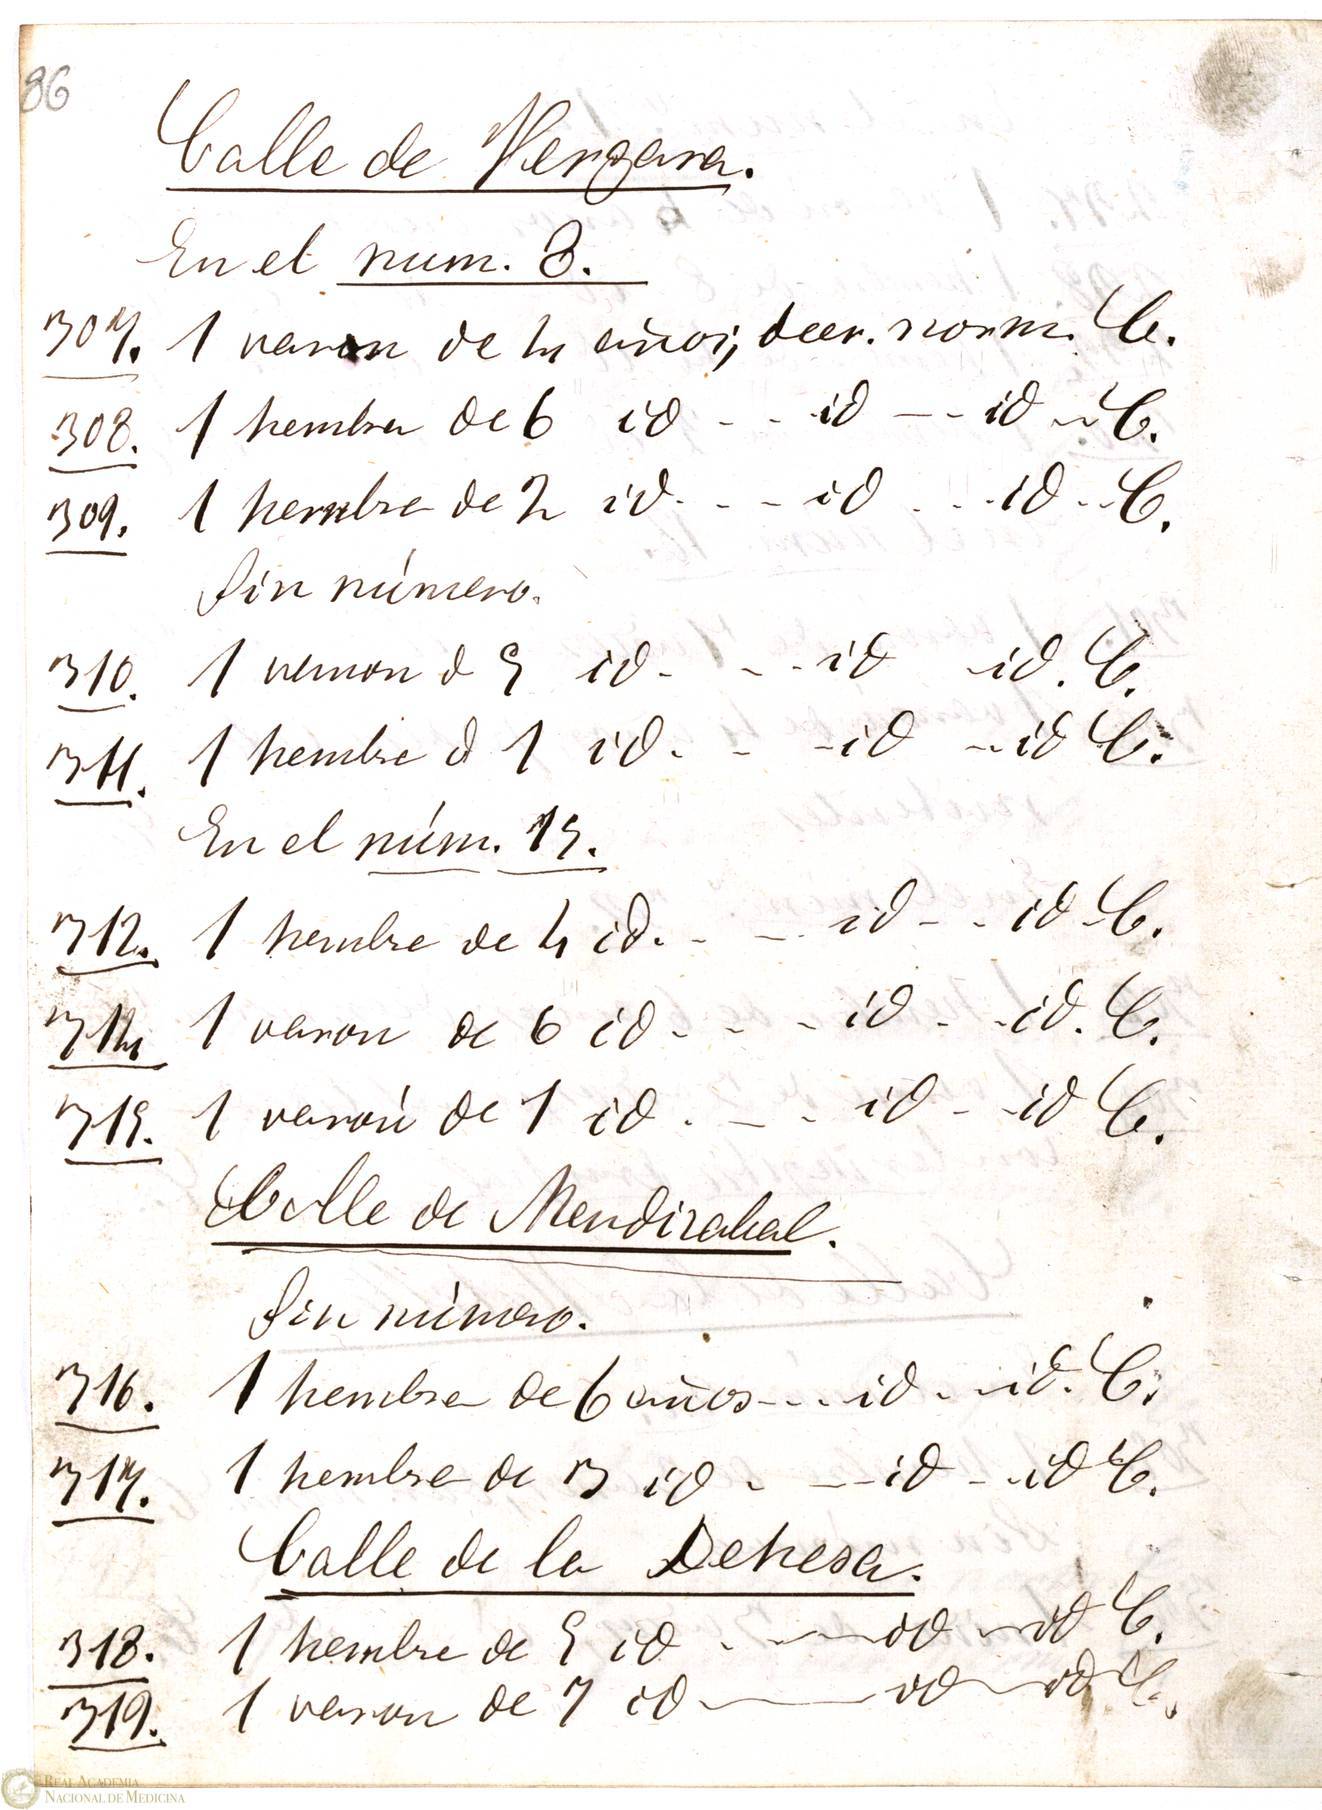 86
Calle de Vergara.
En el num. 8.
307. 1 varon de 4 años; decr. norm. C.
308. 1 hembra de 6 id - - id - - id - C.
309. 1 hembra de 2 id. - - id . . - id - - C.
Sin número.
310. 1 varon d 5 id - - - id - id. C.
311. 1 hembra d 1 id. - - id - id C.
En el núm. 15.
312. 1 hembra de 4 id. - - id - - id - C.
314 1 varon de 6 id - - - id - - id. C.
315. 1 varón de 1 id . - - id - - id C.
Calle de Mendizabal.
Sin número.
316. 1 hembra de 6 años - - - id - - id. C.
317. 1 hembra de 3 id - - id - - id C.
Calle de la Dehesa.
318. 1 hembra de 5 id - - id - id C.
319. 1 varon de 7 id - id - id C.
REAL ACADEMIA
NACIONAL DE MEDICINA